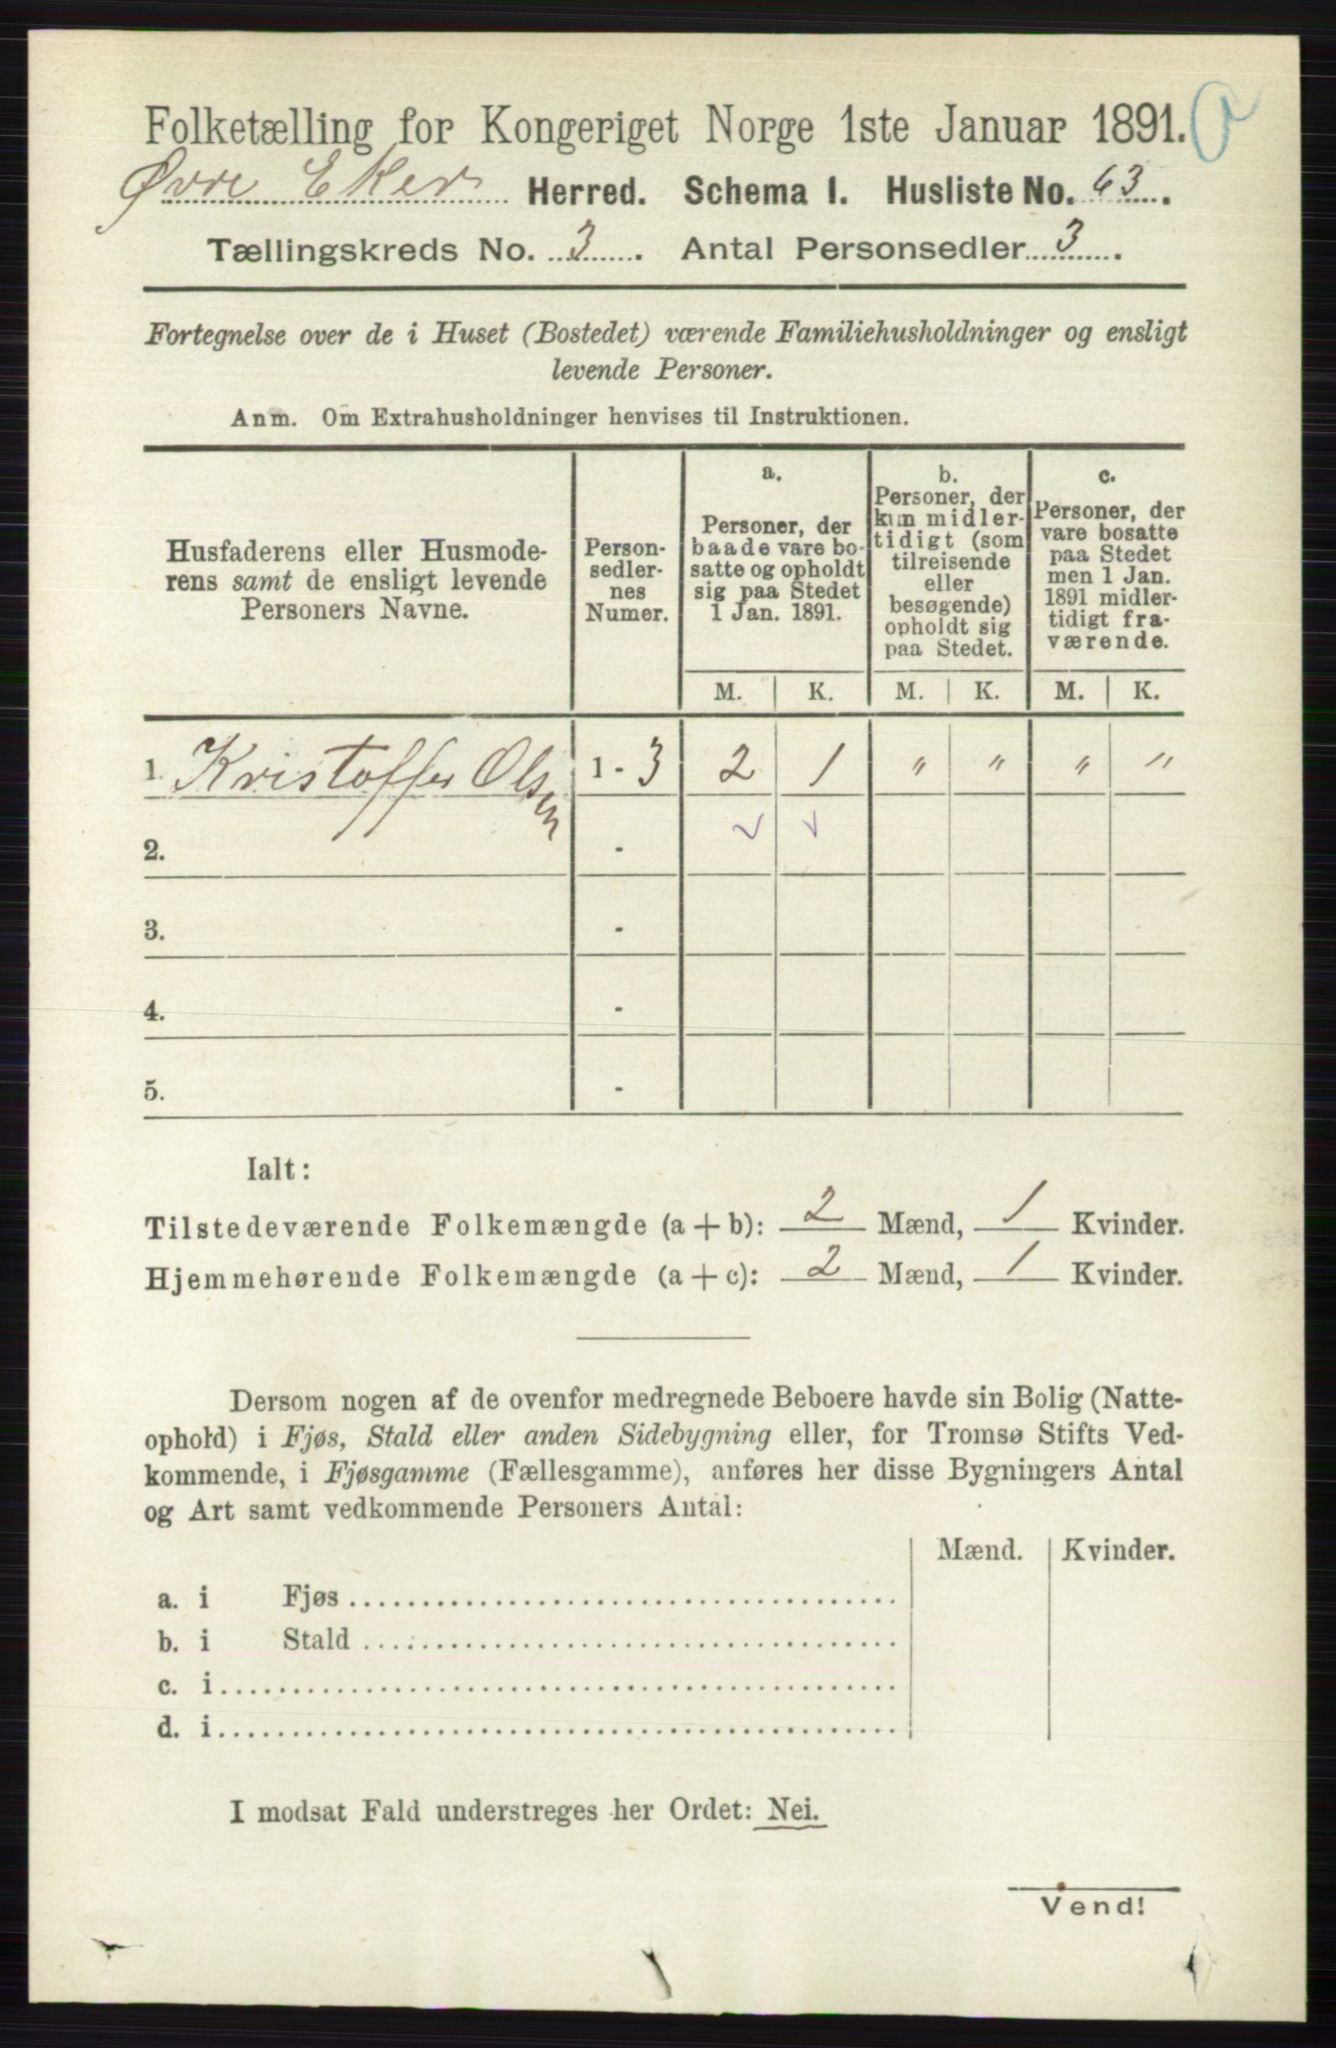 Folketælling for Kongeriget Norge 1ste Januar 1891.
Øvre Eker Herred. Schema 1. Husliste No. 63.
Tællingskreds No. 3. Antal Personsedler 3.
Fortegnelse over de i Huset (Bostedet) værende Familiehusholdninger og ensligt
levende Personer.
Anm. Om Extrahusholdninger henvises til Instruktionen.
Husfaderens eller Husmode-
rens samt de ensligt levende
Personers Navne.
Person-
sedler-
nes
Numer.
a.
Personer, der
baade vare bo-
satte og opholdt
sig paa Stedet
1 Jan. 1891.
b.
Personer, der
kun midler-
tidigt (som
tilreisende
eller
besøgende)
opholdt sig
paa Stedet.
c.
Personer, der
vare bosatte
paa Stedet
men 1 Jan.
1891 midler-
tidigt fra-
værende.
M. K. M. K. M. K.
1. Kristoffer Olsen 1 - 3 2 1 " " " "
2. -
3. -
4. -
5. -
Ialt:
Tilstedeværende Folkemængde (a + b): 2 Mænd, 1 Kvinder.
Hjemmehørende Folkemængde (a + c): 2 Mænd, 1 Kvinder.
Dersom nogen af de ovenfor medregnede Beboere havde sin Bolig (Natte-
ophold) i Fjøs, Stald eller anden Sidebygning eller, for Tromsø Stifts Ved-
kommende, i Fjøsgamme (Fællesgamme), anføres her disse Bygningers Antal
og Art samt vedkommende Personers Antal:
Mænd. Kvinder.
a. i Fjøs
b. i Stald
c. i
d. i
I modsat Fald understreges her Ordet: Nei.
Vend!